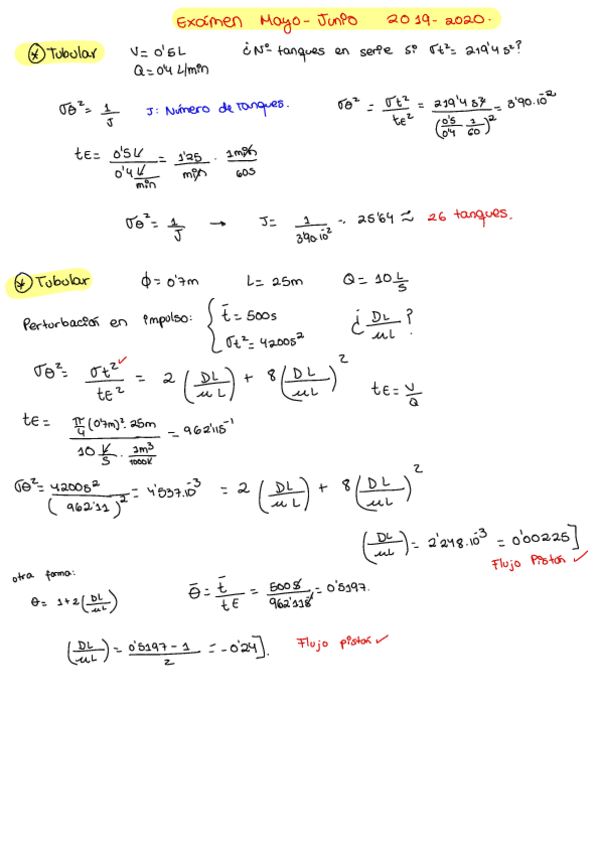 Exámen Mayo-Junio 2019-2020.
* Tubular V= 0'5L ¿Nº tanques en serie si σt²= 219'4 s²?
Q= 0'4 L/min
σθ²= 1/J J: Número de tanques. σθ² = σt²/tE² = 219'4 s²/(0'5/0'4 · 1/60)² = 3'90.10⁻²
tE= 0'5 L/0'4 L/min = 1'25/min · 1min/60s
σθ²= 1/J → J= 1/3'90.10⁻² = 25'64 ≈ 26 tanques.
* Tubular ϕ= 0'7m L= 25m Q= 10 L/s
Perturbación en impulso: { t̄= 500s ¿ DL/uL ?
σt²= 4200s²
σθ²= σt²/tE² = 2 (DL/uL) + 8 (DL/uL)² tE= V/Q
tE= π/4 (0'7m)². 25m / 10 L/s · 1m³/1000L = 962'11s⁻¹
σθ²= 4200s²/(962'11)² = 4'537.10⁻³ = 2 (DL/uL) + 8 (DL/uL)²
(DL/uL) = 2'248.10⁻³ = 0'00225]
Flujo Pistón ✓
otra forma:
θ = 1+2 (DL/uL) θ̄ = t̄/tE = 500s/962'11s = 0'5197.
(DL/uL) = 0'5197-1/2 = -0'24]. Flujo pistón ✓